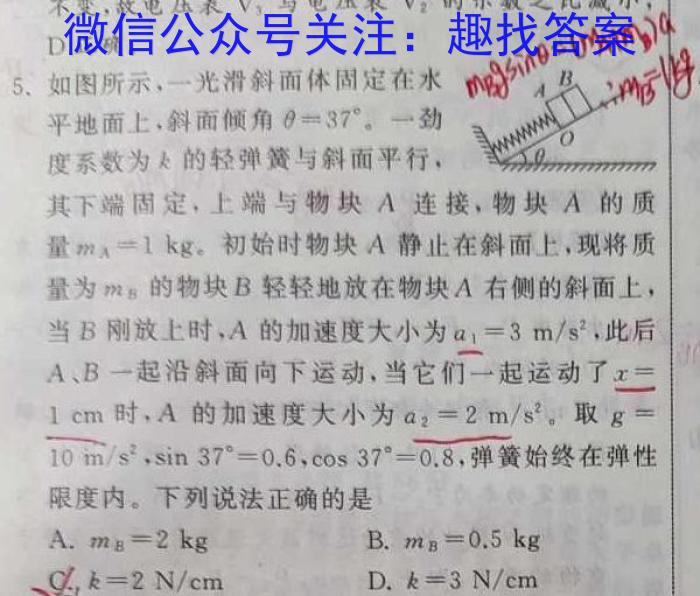 不变,故电压表 V₃ 与电压表 V₂ 的示数之比减小,
D
微信公众号关注:趣找答案
5. 如图所示,一光滑斜面体固定在水
平地面上,斜面倾角 θ=37°。一劲
度系数为 k 的轻弹簧与斜面平行,
A B
O
θ
其下端固定,上端与物块 A 连接,物块 A 的质
量 m_A=1 kg。初始时物块 A 静止在斜面上,现将质
量为 m_B 的物块 B 轻轻地放在物块 A 右侧的斜面上,
当 B 刚放上时,A 的加速度大小为 a₁=3 m/s²,此后
A、B 一起沿斜面向下运动,当它们一起运动了 x=
1 cm 时,A 的加速度大小为 a₂=2 m/s²。取 g=
10 m/s²,sin 37°=0.6,cos 37°=0.8,弹簧始终在弹性
限度内。下列说法正确的是
A. m_B=2 kg B. m_B=0.5 kg
C. k=2 N/cm D. k=3 N/cm